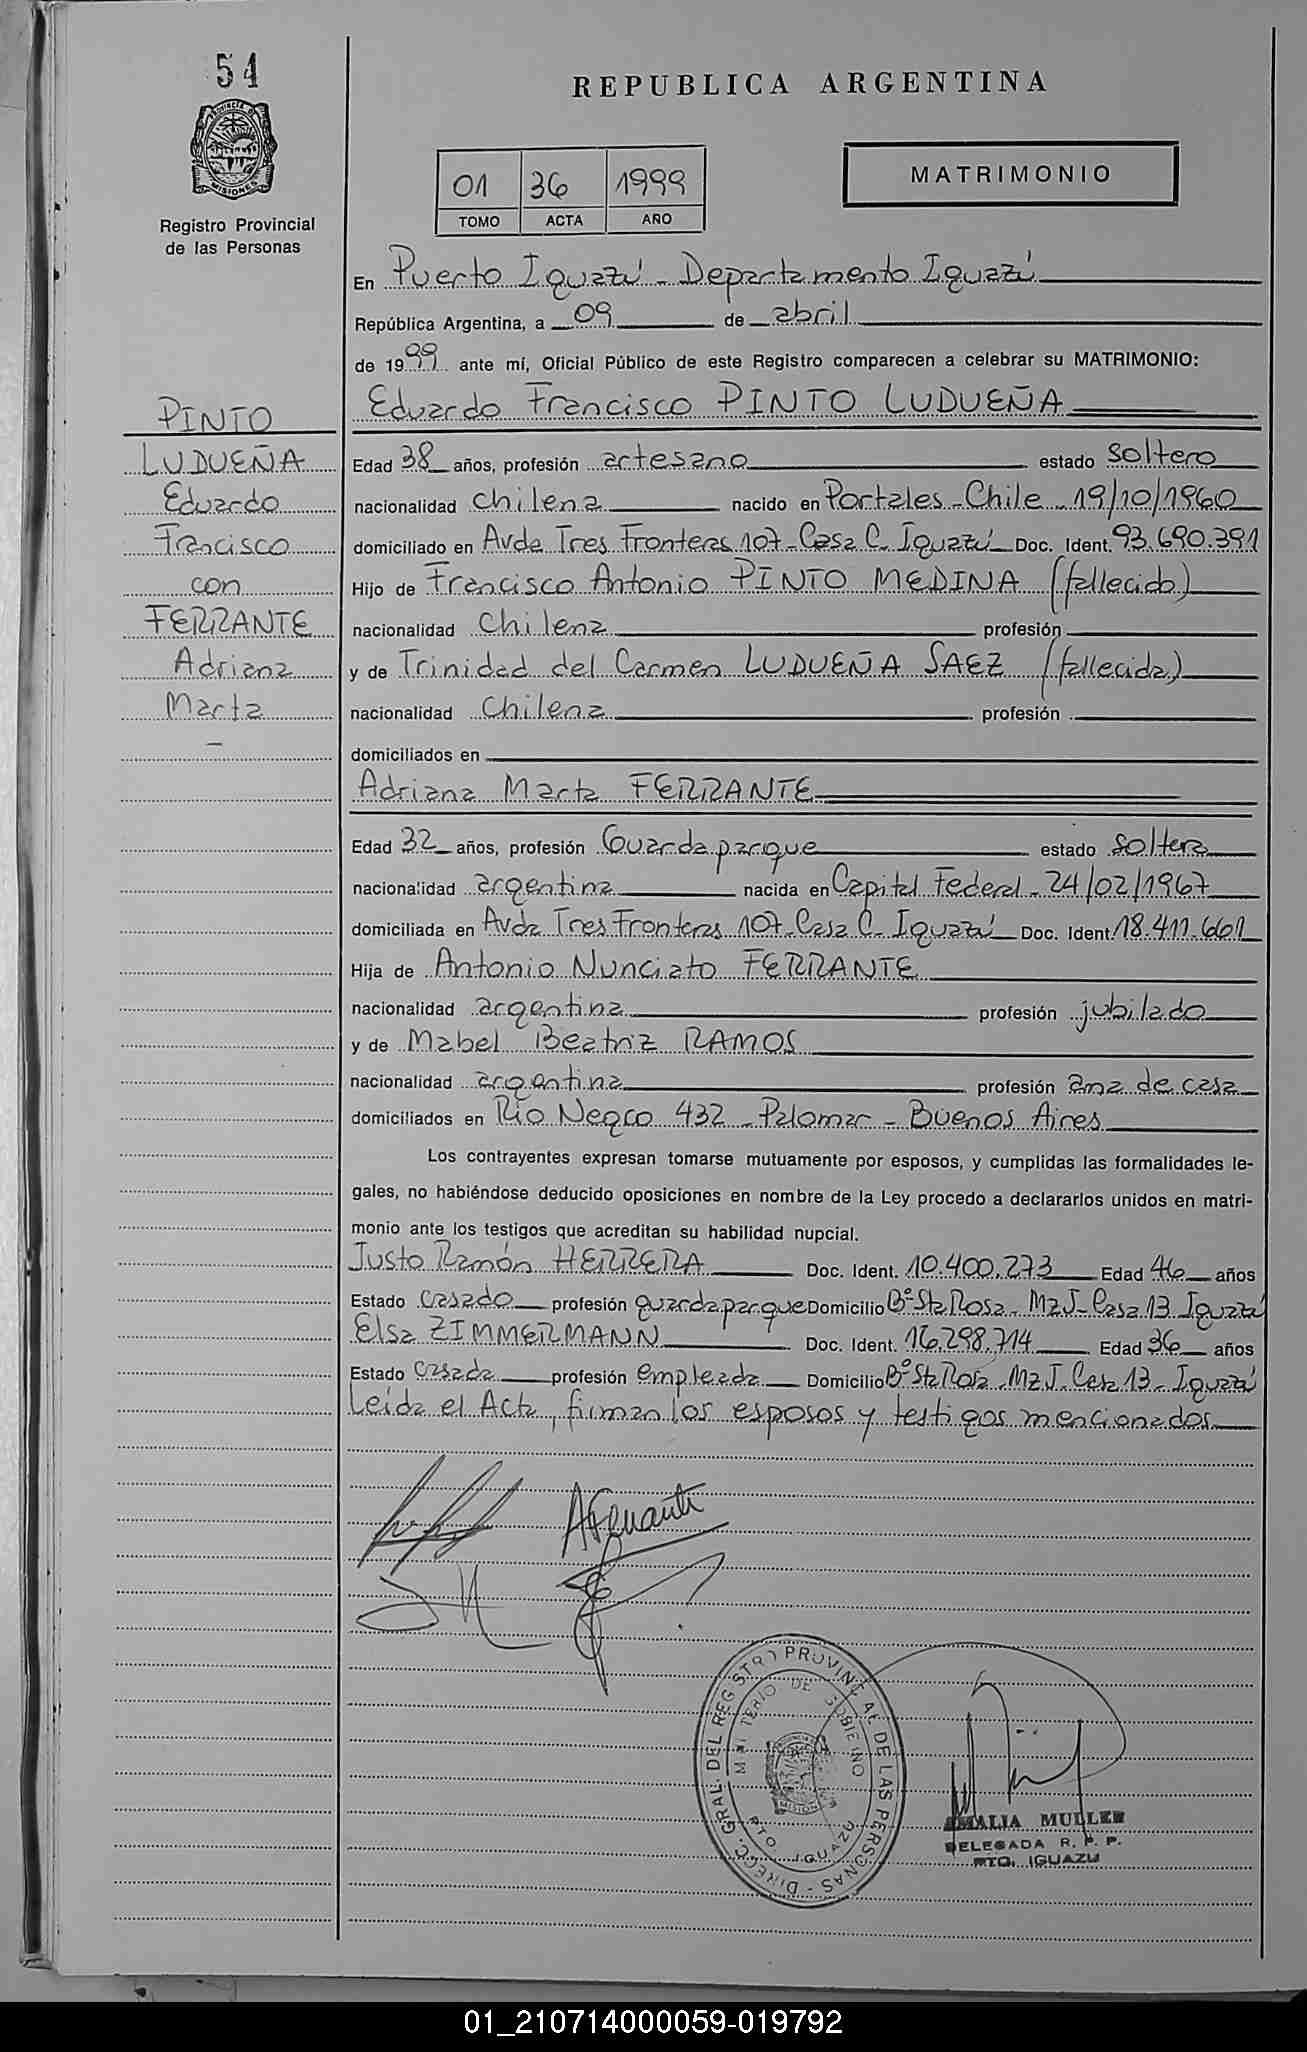 54
REPUBLICA ARGENTINA
MISIONES
Registro Provincial
de las Personas
01 36 1999
TOMO ACTA AÑO
MATRIMONIO
En Puerto Iguazú - Departamento Iguazú
República Argentina, a 09 de abril
de 1999 ante mí, Oficial Público de este Registro comparecen a celebrar su MATRIMONIO:
PINTO
LUDUEÑA
Eduardo
Francisco
con
FERRANTE
Adriana
Marta
-
Eduardo Francisco PINTO LUDUEÑA
Edad 38 años, profesión artesano estado soltero
nacionalidad chilena nacido en Portales - Chile - 19/10/1960
domiciliado en Avda Tres Fronteras 107 - Casa C - Iguazú Doc. Ident. 93.690.391
Hijo de Francisco Antonio PINTO MEDINA (fallecido)
nacionalidad chilena profesión
y de Trinidad del Carmen LUDUEÑA SAEZ (fallecida)
nacionalidad chilena profesión
domiciliados en
Adriana Marta FERRANTE
Edad 32 años, profesión Guardaparque estado soltera
nacionalidad argentina nacida en Capital Federal - 24/02/1967
domiciliada en Avda Tres Fronteras 107 - Casa C - Iguazú Doc. Ident. 18.411.661
Hija de Antonio Nunciato FERRANTE
nacionalidad argentina profesión jubilado
y de Mabel Beatriz RAMOS
nacionalidad argentina profesión ama de casa
domiciliados en Río Negro 432 - Palomar - Buenos Aires
Los contrayentes expresan tomarse mutuamente por esposos, y cumplidas las formalidades le-
gales, no habiéndose deducido oposiciones en nombre de la Ley procedo a declararlos unidos en matri-
monio ante los testigos que acreditan su habilidad nupcial.
Justo Ramón HERRERA Doc. Ident. 10.400.273 Edad 46 años
Estado casado profesión guardaparque Domicilio Bº Sta Rosa - Mz J - Casa 13 Iguazú
Elsa ZIMMERMANN Doc. Ident. 16.298.714 Edad 36 años
Estado casada profesión empleada Domicilio Bº Sta Rosa - Mz J - Casa 13 - Iguazú
Leída el Acta, firman los esposos y testigos mencionados
AFerrante
DIRECC. GRAL. DEL REGISTRO PROVINCIAL DE LAS PERSONAS
MINISTERIO DE GOBIERNO
PTO. IGUAZU
MISIONES
AMALIA MULLER
DELEGADA R. P. P.
PTO. IGUAZU
01_210714000059-019792